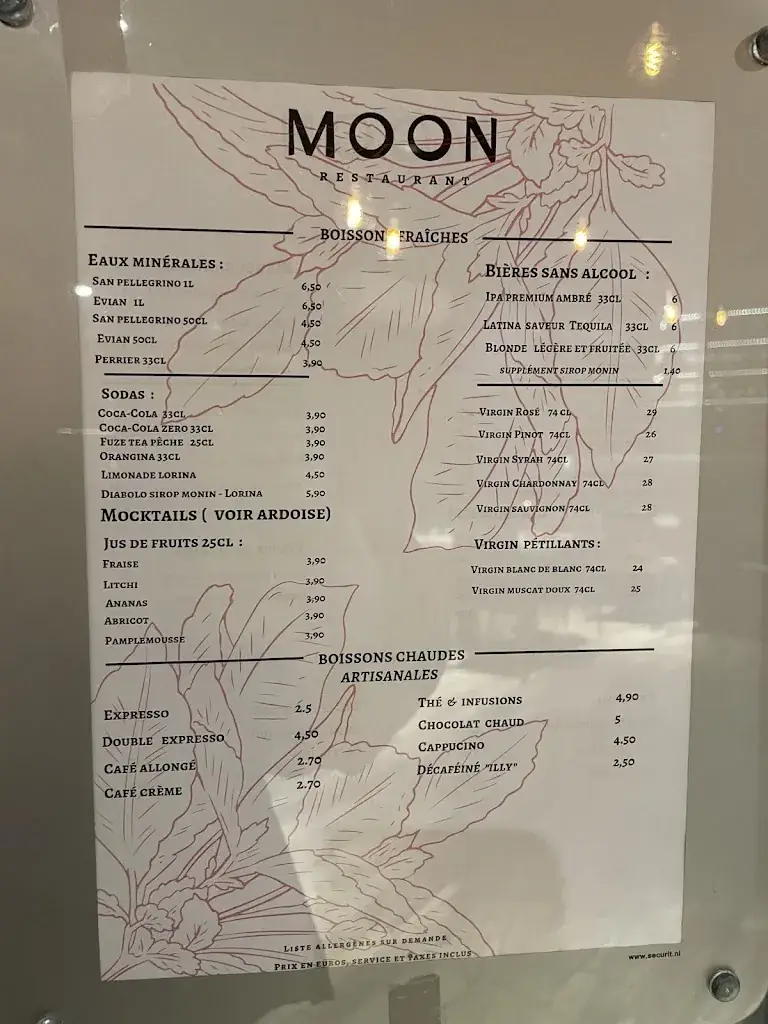 MOON
RESTAURANT
BOISSON FRAÎCHES
EAUX MINÉRALES :
SAN PELLEGRINO 1L 6,50
EVIAN 1L 6,50
SAN PELLEGRINO 50CL 4,50
EVIAN 50CL 4,50
PERRIER 33CL 3,90
SODAS :
COCA-COLA 33CL 3,90
COCA-COLA ZERO 33CL 3,90
FUZE TEA PÊCHE 25CL 3,90
ORANGINA 33CL 3,90
LIMONADE LORINA 4,50
DIABOLO SIROP MONIN - LORINA 5,90
MOCKTAILS ( VOIR ARDOISE)
JUS DE FRUITS 25CL :
FRAISE 3,90
LITCHI 3,90
ANANAS 3,90
ABRICOT 3,90
PAMPLEMOUSSE 3,90
BIÈRES SANS ALCOOL :
IPA PREMIUM AMBRÉ 33CL 6
LATINA SAVEUR TEQUILA 33CL 6
BLONDE LÉGÈRE ET FRUITÉE 33CL 6
SUPPLÉMENT SIROP MONIN 1,40
VIRGIN ROSÉ 74 CL 29
VIRGIN PINOT 74CL 26
VIRGIN SYRAH 74CL 27
VIRGIN CHARDONNAY 74CL 28
VIRGIN SAUVIGNON 74CL 28
VIRGIN PÉTILLANTS :
VIRGIN BLANC DE BLANC 74CL 24
VIRGIN MUSCAT DOUX 74CL 25
BOISSONS CHAUDES
ARTISANALES
EXPRESSO 2.5
DOUBLE EXPRESSO 4,50
CAFÉ ALLONGÉ 2.70
CAFÉ CRÈME 2.70
THÉ & INFUSIONS 4,90
CHOCOLAT CHAUD 5
CAPPUCINO 4.50
DÉCAFÉINÉ "ILLY" 2,50
LISTE ALLERGÈNES SUR DEMANDE
PRIX EN EUROS, SERVICE ET TAXES INCLUS
www.securit.nl